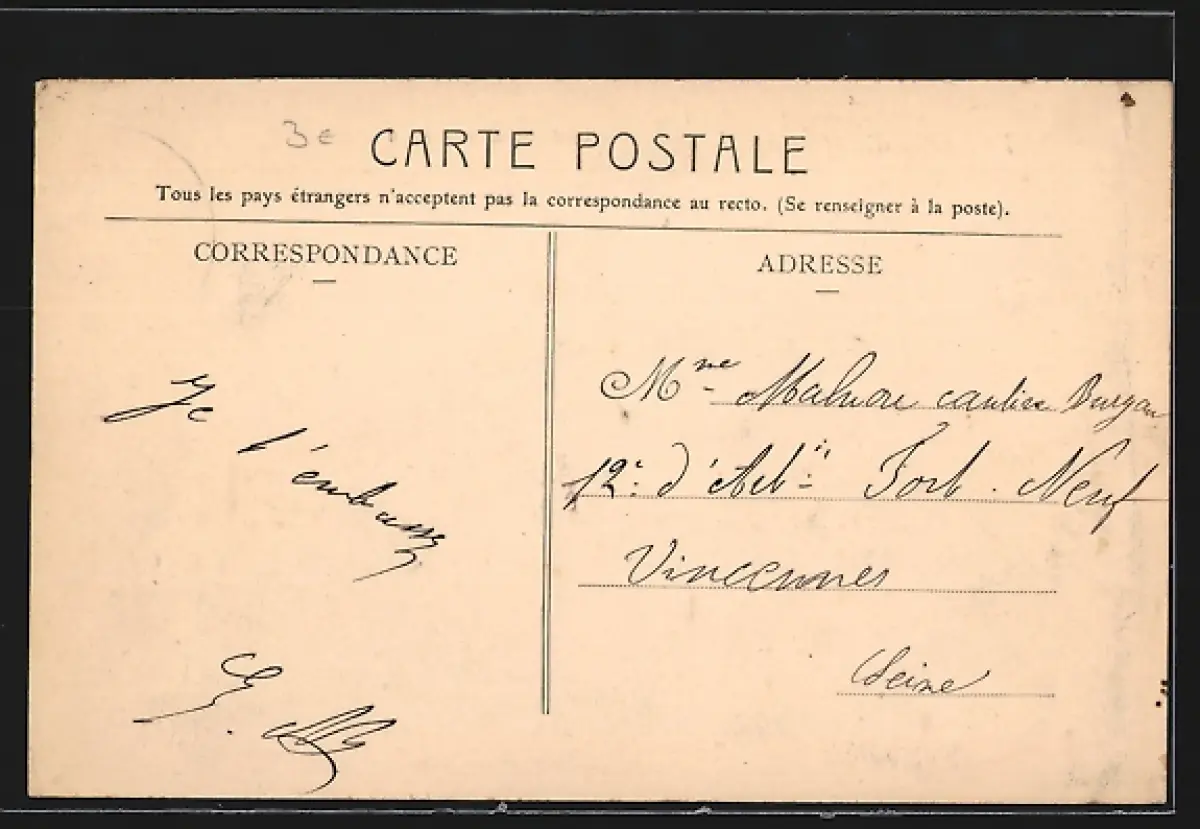 3€
CARTE POSTALE
Tous les pays étrangers n'acceptent pas la correspondance au recto. (Se renseigner à la poste).
CORRESPONDANCE
ADRESSE
Je
t'embrasse
Mme
12e d'Artie Fort Neuf
Vincennes
Seine